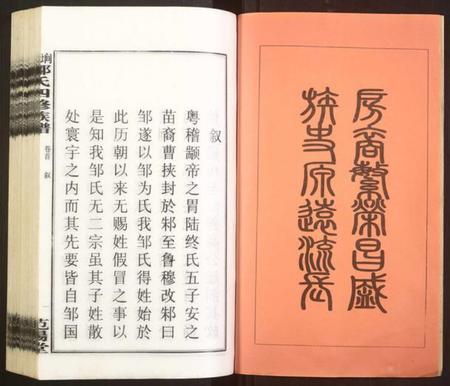 房裔繁榮昌盛
族史源遠流長
叙
粤稽颛帝之胄陆终氏五子安之
苗裔曹挟封於邾至鲁穆改邾曰
邹遂以邹为氏我邹氏得姓始於
此历朝以来无赐姓假冒之事以
是知我邹氏无二宗虽其子姓散
处寰宇之内而其先要皆自邹国
氏四修族谱
卷首 叙
堂